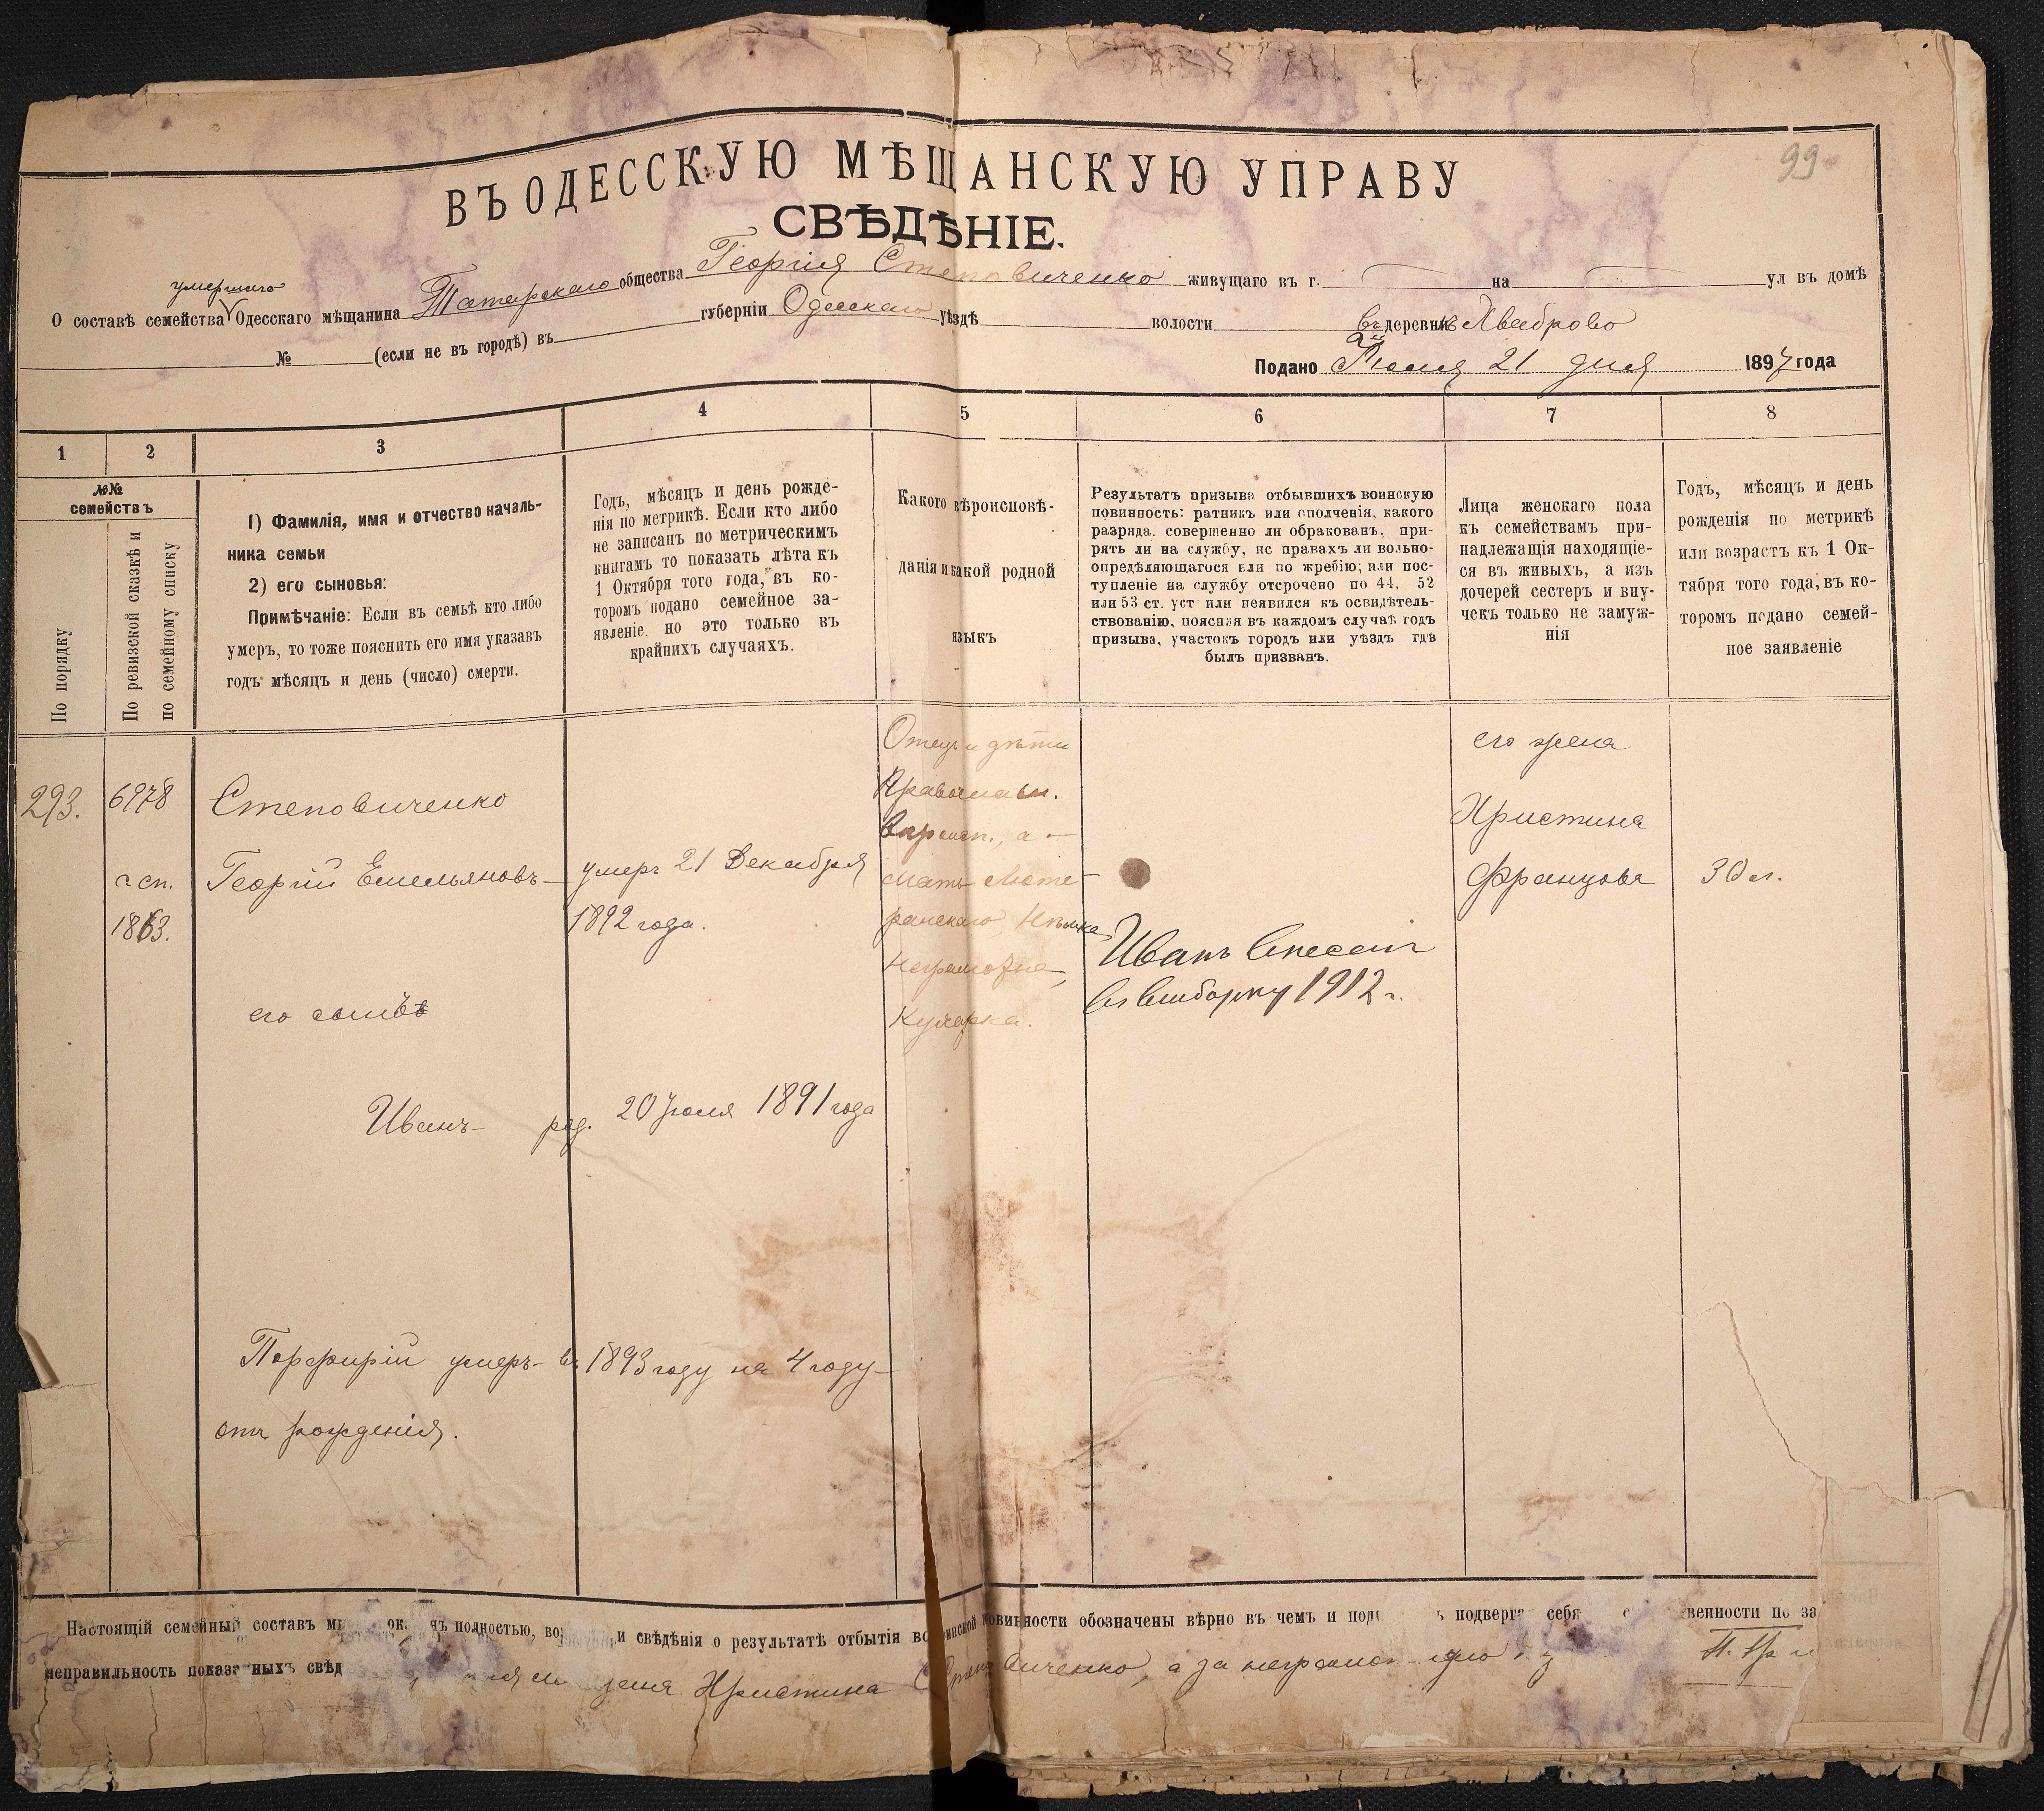 99
ВЪ ОДЕССКУЮ МѢЩАНСКУЮ УПРАВУ
СВѢДѢНІЕ.
умершаго
О составѣ семейства Одесскаго мѣщанина Татарскаго общества Георгія Степовиченко живущаго въ г. на ул въ домѣ
№ (если не въ городѣ) въ губерніи Одесскаго уѣздѣ волости въ деревни
Подано Іюля 21 дня 1897 года
1 2 3 4 5 6 7 8
№№ семействъ
По порядку
По ревизской сказкѣ и
по семейному списку
1) Фамилія, имя и отчество началь-
ника семьи
2) его сыновья:
Примѣчаніе: Если въ семьѣ кто либо
умеръ, то тоже пояснить его имя указавъ
годъ мѣсяцъ и день (число) смерти.
Годъ, мѣсяцъ и день рожде-
нія по метрикѣ. Если кто либо
не записанъ по метрическимъ
книгамъ то показать лѣта къ
1 Октября того года, въ ко-
торомъ подано семейное за-
явленіе. но это только въ
крайнихъ случаяхъ.
Какого вѣроисповѣ-
данія и какой родной
языкъ
Результатъ призыва отбывшихъ воинскую
повинность: ратникъ или ополченія, какого
разряда. совершенно ли обракованъ, при-
рять ли на службу, нс правахъ ли вольно-
опредѣляющагося или по жребію; или пос-
тупленіе на службу отсрочено по 44, 52
или 53 ст. уст или неявился къ освидѣтель-
ствованію, поясняя въ каждомъ случаѣ годъ
призыва, участокъ городъ или уѣздъ гдѣ
былъ призванъ.
Лица женскаго пола
къ семействамъ при-
надлежащія находящіе-
ся въ живыхъ, а изъ
дочерей сестеръ и вну-
чекъ только не замуж-
нія
Годъ, мѣсяцъ и день
рожденія по метрикѣ
или возрастъ къ 1 Ок-
тября того года, въ ко-
торомъ подано семей-
ное заявленіе
293.
6978
г сп.
1863.
Степовиченко
Георгій Емельяновъ-
его сынъ
Иванъ- род. 20 Іюля 1891 года
Порфирій умеръ- въ 1893 году на 4 году
отъ рожденія.
умеръ 21 Декабря
1892 года.
Отецъ и дѣти
Православн.
а
мать Люте-
ранскаго, Нѣмка
Неграмотна,
Кухарка.
Иванъ внесенъ
въ выборку 1912 г.
его жена
Христина
Францова
30 л.
Настоящій семейный составъ полностью, и свѣдѣнія о результатѣ отбытія воинской повинности обозначены вѣрно въ чемъ и подвергая себя по за
неправильность показанныхъ свѣд Христина а за